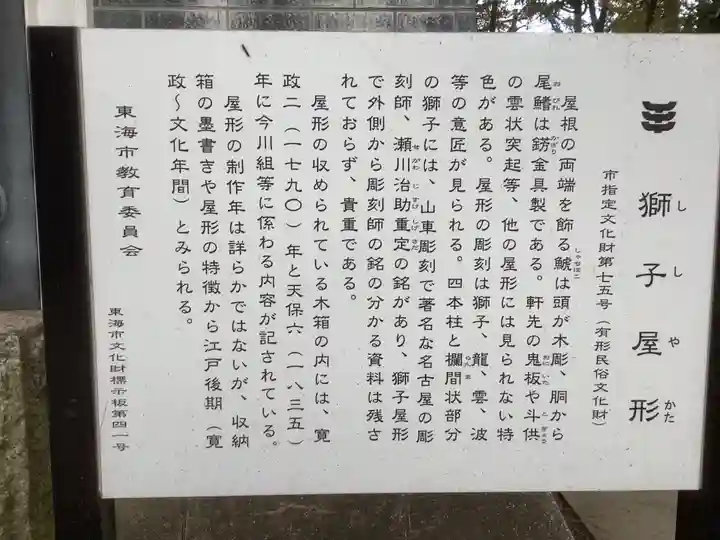 獅子屋形
し し や かた
市指定文化財第七五号(有形民俗文化財)
屋根の両端を飾る鯱は頭が木彫、胴から
尾鰭は錺金具製である。軒先の鬼板や斗供
の雲状突起等、他の屋形には見られない特
色がある。屋形の彫刻は獅子、龍、雲、波
等の意匠が見られる。四本柱と欄間状部分
の獅子には、山車彫刻で著名な名古屋の彫
刻師、瀬川治助重定の銘があり、獅子屋形
で外側から彫刻師の銘の分かる資料は残さ
れておらず、貴重である。
屋形の収められている木箱の内には、寛
政二(一七九〇)年と天保六(一八三五)
年に今川組等に係わる内容が記されている。
屋形の制作年は詳らかではないが、収納
箱の墨書きや屋形の特徴から江戸後期(寛
政〜文化年間)とみられる。
東海市教育委員会
東海市文化財標示板第四一号